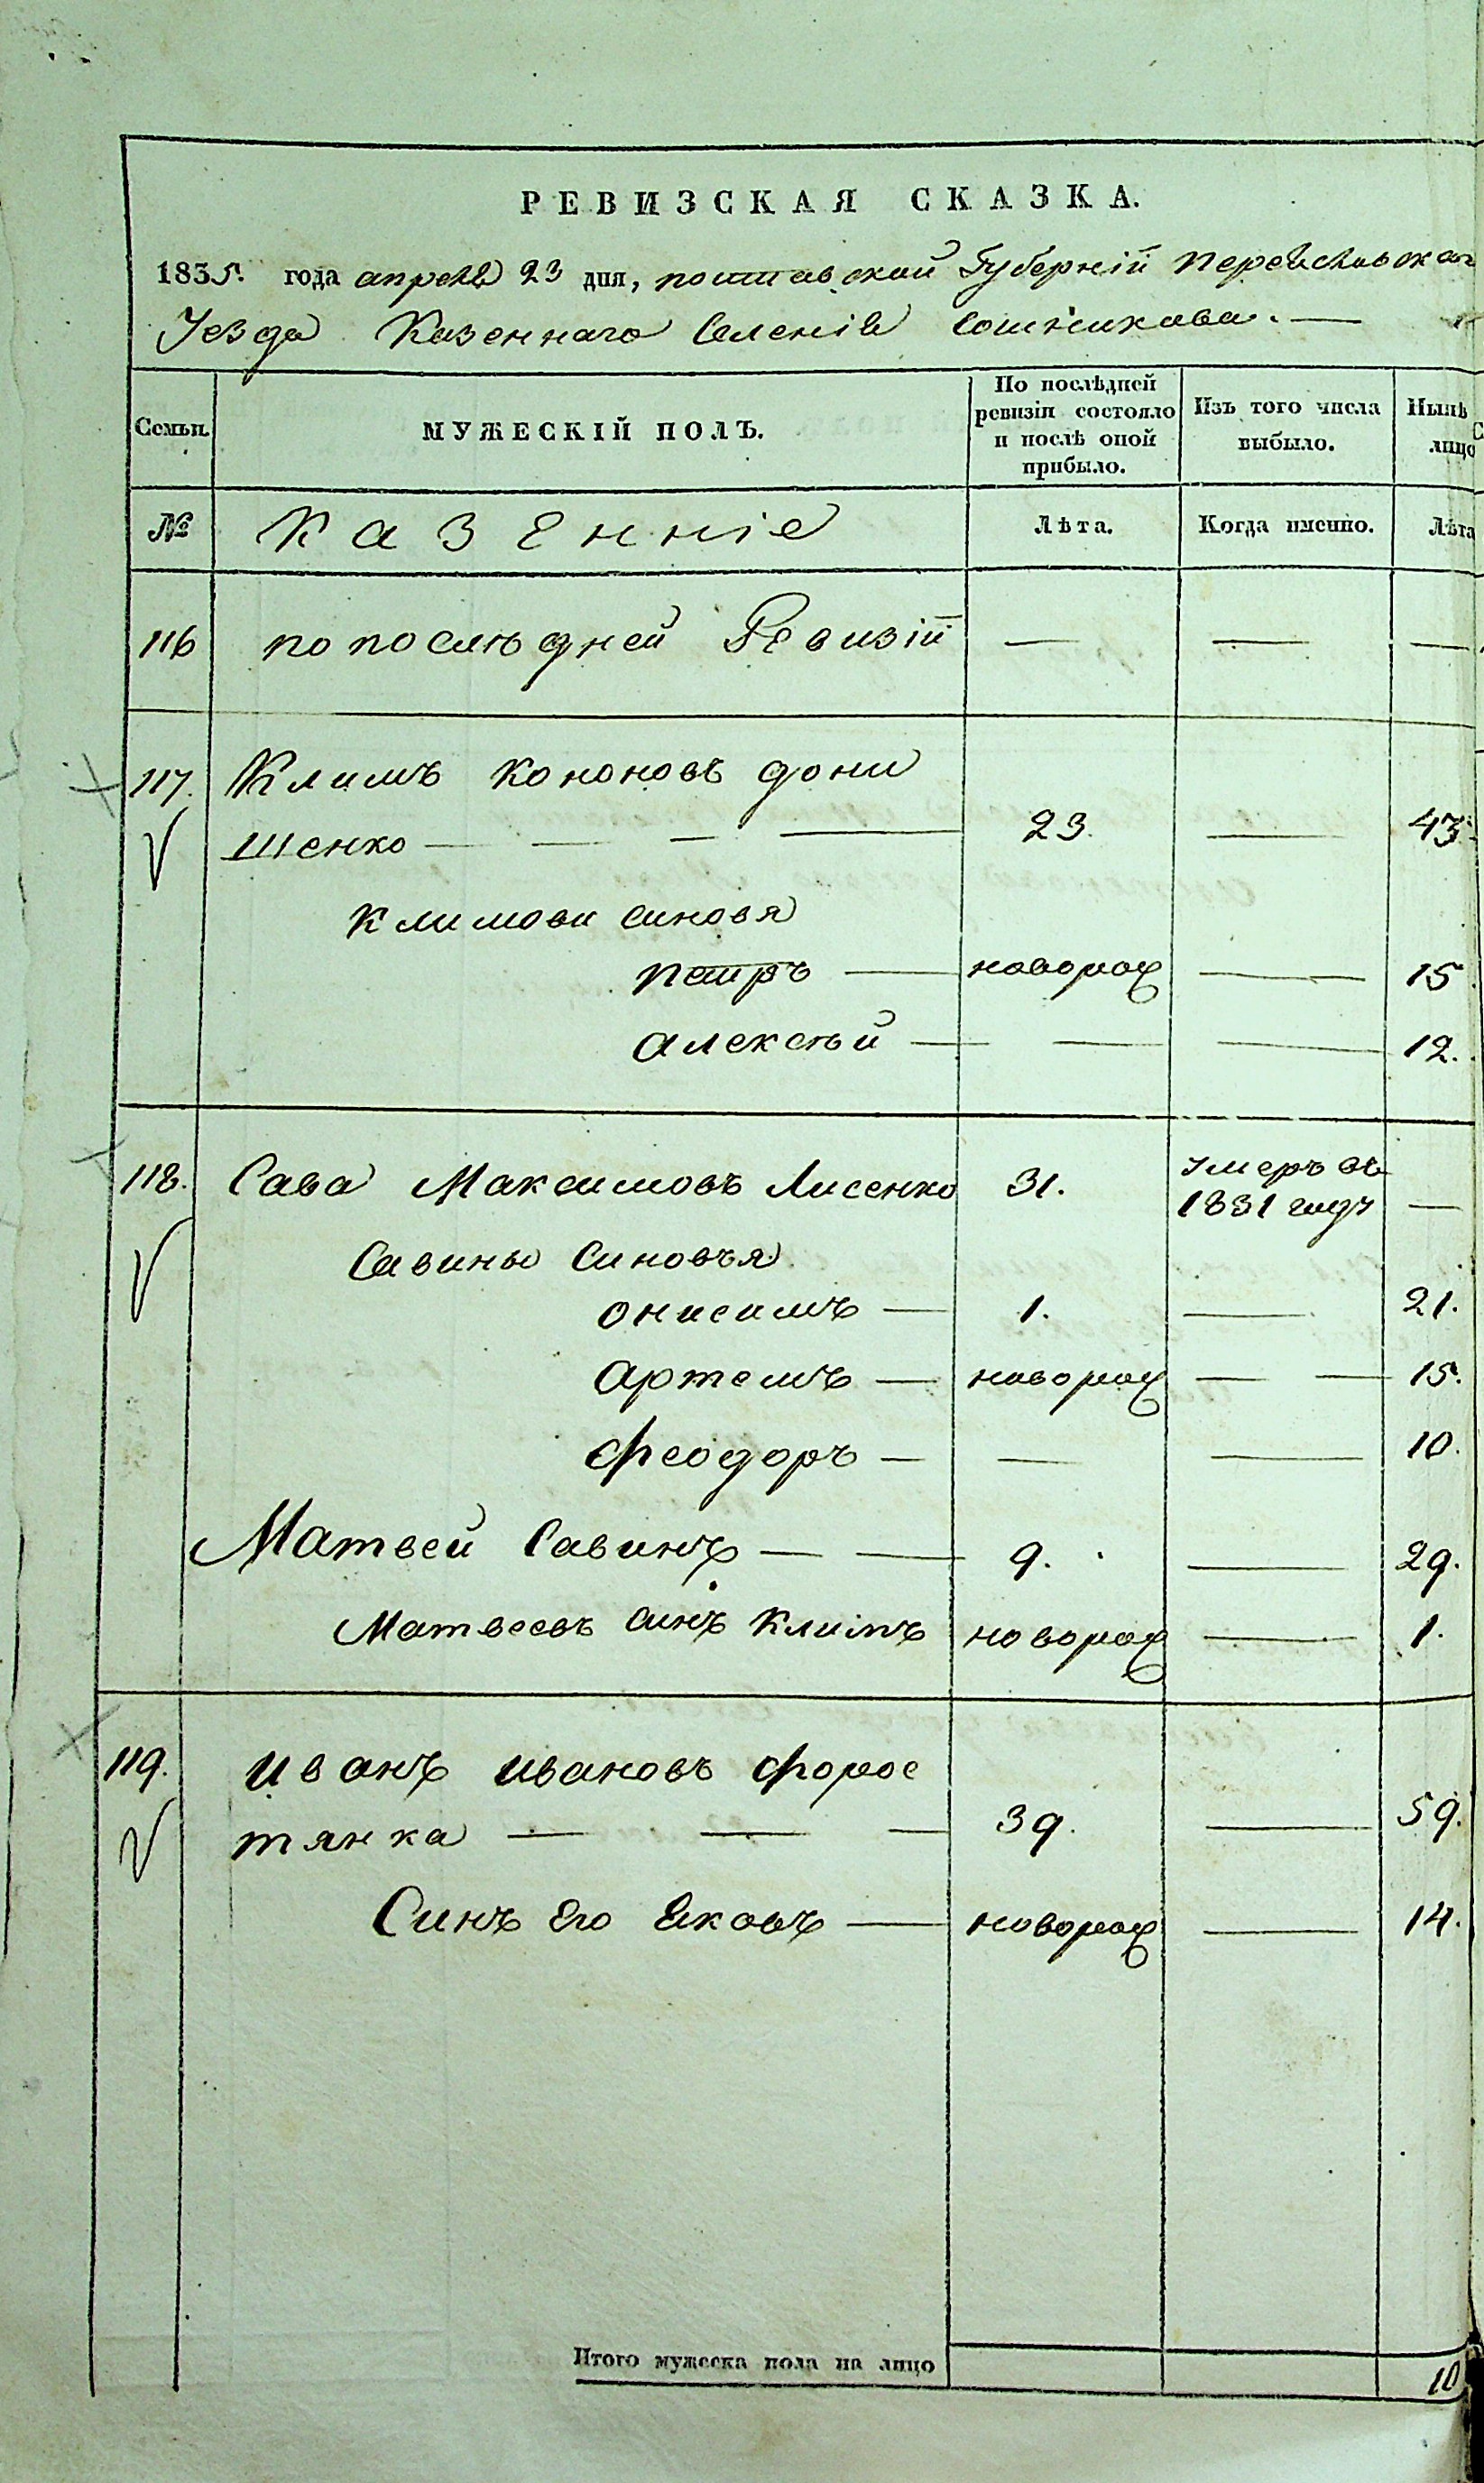 РЕВИЗСКАЯ СКАЗКА.
1835. года апреля 23 дня, полтавской Губерній переяславскаг
Уезда Казеннаго Селенія Сошникава. —
Семьи. МУЖЕСКІЙ ПОЛЪ. По послѣдней ревизіи состояло и послѣ оной прибыло. Изъ того числа выбыло. Нынѣ лицо
№ Казенніе Лѣта. Когда именно. Лѣта
116 по последней Ревизій — — —
117. Климъ Кононовъ дони
шенко — — — — 23. — 43.
Климови синовя
петръ — новорож — 15
алексѣй — — — 12.
118. Сава Максимовъ Лисенко 31. умеръ въ 1831 году —
Савины Синовъя
онисимъ — 1. — 21.
артемъ — новорож — — 15.
феодоръ — — — 10.
Матвей Савинъ — — 9. — 29.
Матвеевъ синъ Климъ новорож — 1.
119. иванъ ивановъ форос
тянка — — — 39. — 59.
Синъ его Яковъ — новорож — 14.
Итого мужеска пола на лицо 10